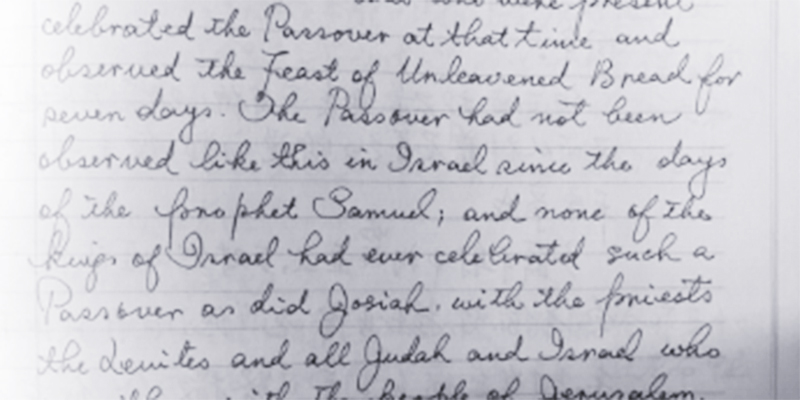 who were present
celebrated the Passover at that time and
observed the Feast of Unleavened Bread for
seven days. The Passover had not been
observed like this in Israel since the days
of the prophet Samuel; and none of the
kings of Israel had ever celebrated such a
Passover as did Josiah, with the priests
the Levites and all Judah and Israel who
with the people of Jerusalem.